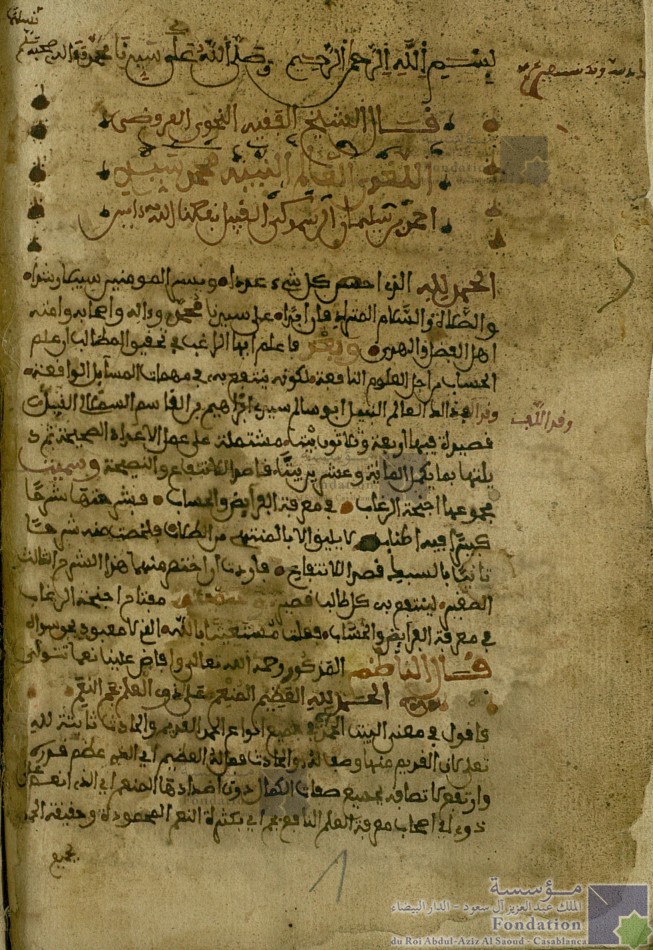 بسم الله الرحمن الرحيم وصلى الله على سيدنا محمد وءاله وصحبه وسلم
قال الشيخ الفقيه النحوي العروضي
اللغوي
احمد بن سليمان الرسموكي
الحمد لله الذي احصى كل شيء عددا
والصلاة والسلام على سيدنا محمد وءاله واصحابه وامته
اهل الفضل والهدى وبعد فاعلم ايها الراغب في تحقيق المطالب ان علم
الحساب من اجل العلوم النافعة لكونه ينتفع به في مهمات المسايل الواقعة
وقد الف العالم ابو سالم سيدي ابراهيم بن ابي القاسم السملالي
وقد الف
قصيدة فيها اربعة وثلاثون بيتا مشتملة على عمل الاعداد الصحيحة ثم ذ
يلتها بما يكمل الماية وعشرين بيتا قاصدا للانتفاع والنصيحة وسميت
مجموعها اجنحة الرغاب في معرفة الفرايض والحساب فشرحتها شرحا
كبيرا فيه اطناب لا يليق الا بالمنتهي من الطلاب فلخصت منه شرحا
ثانيا بالسيط قصدا للانتفاع فاردت ان اختصر منهما هذا الشرح الثالث
الصغير لينتفع به كل طالب اجنحة الرغاب
في معرفة الفرايض والحساب فقلت مستعينا بالله الذي لا معبود بحق سواه
قال الناظم المذكور رحمه الله تعالى وافاض علينا نعما تتوالى
الحمد لله العظيم المنعم على ذوي العلم بجم النعم
فاقول في معنى البيت الحمد جميع انواع الحمد القديم والحادث ثابتة لله
تعلى لان القديم منها وصفا له والحادث فعلا له العظيم اي الذي عظم قدره
وارتفع لاتصافه بجميع صفات الكمال دون اضدادها المنعم اي الذي انعم على
ذوي اي اصحاب معرفة العلم النافع بجم اي بكثرة النعم المحمودة وحقيقة الحمد
1
مؤسسة
الملك عبد العزيز آل سعود - الدار البيضاء
Fondation
du Roi Abdul-Aziz Al Saoud - Casablanca